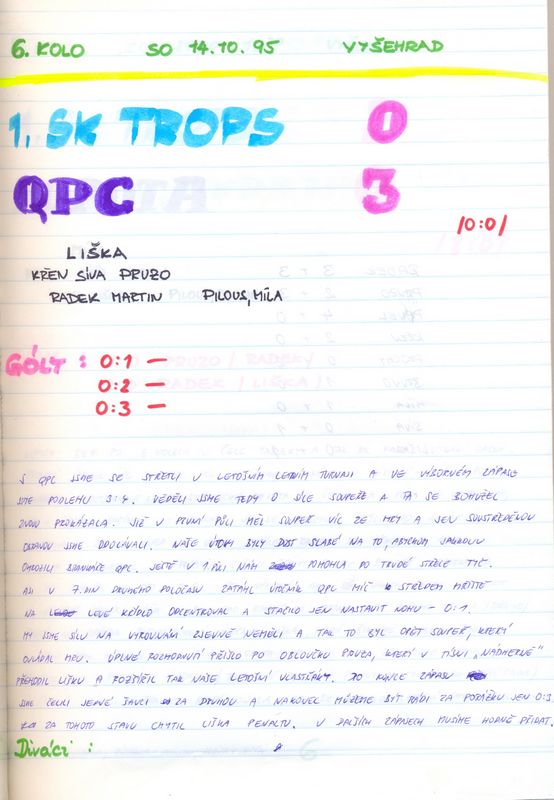 6. KOLO SO 14.10.95 VYŠEHRAD
1. SK TROPS 0
QPC 3
/0:0/
LIŠKA
KŘEN SÍVA PRUZO
RADEK MARTIN PILOUS, MÍLA
GÓLY : 0:1 –
0:2 –
0:3 –
S QPC JSME SE STŘETLI V LETOŠNÍM LETNÍM TURNAJI A VE VÝBORNÉM ZÁPASE
JSME PODLEHLI 3:4. VĚDĚLI JSME TEDY O SÍLE SOUPEŘE A TA SE BOHUŽEL
ZNOVU PROKÁZALA. JIŽ V PRVNÍ PŮLI MĚL SOUPEŘ VÍC ZE HRY A JEN SOUSTŘEDĚNOU
OBRANOU JSME ODOLÁVALI. NAŠE ÚTOKY BYLY DOST SLABÉ NA TO, ABYCHOM JAKKOLIV
OHROZILI BRANKÁŘE QPC. JEŠTĚ V 1. PŮLI NÁM POMOHLA PO TVRDÉ STŘELE TYČ.
ASI V 7. MIN DRUHÉHO POLOČASU ZATÁHL ÚTOČNÍK QPC MÍČ STŘEDEM HŘIŠTĚ
NA LEVÉ KŘÍDLO ODCENTROVAL A STAČILO JEN NASTAVIT NOHU – 0:1.
MY JSME SÍLU NA VYROVNÁNÍ ZJEVNĚ NEMĚLI A TAK TO BYL OPĚT SOUPEŘ, KTERÝ
OVLÁDAL HRU. ÚPLNÉ ROZHODNUTÍ PŘIŠLO PO OBLOUČKU PRUZA, KTERÝ „NÁDHERNĚ"
PŘEHODIL LIŠKU A ROZŠÍŘIL TAK NAŠE LETOŠNÍ VLASTŇÁKY. DO KONCE ZÁPASU
JSME ČELILI JEDNÉ ŠANCI ZA DRUHOU A NAKONEC MŮŽEME BÝT RÁDI ZA PORÁŽKU JEN 0:3.
ZA TOHOTO STAVU CHYTIL LIŠKA PENALTU. V DALŠÍCH ZÁPASECH MUSÍME HODNĚ PŘIDAT.
Diváci :